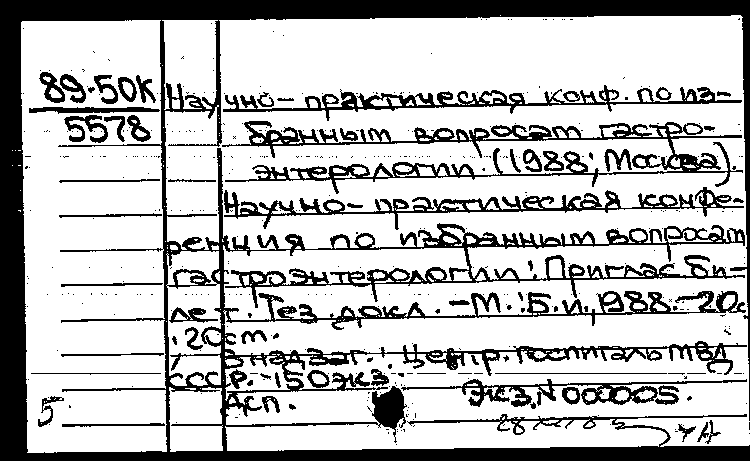 89-50К
5578
Научно-практическая конф. по из-
бранным вопросам гастро-
энтерологии. (1988; Москва).
Научно-практическая конфе-
ренция по избранным вопросам
гастроэнтерологии: Приглас. би-
лет. Тез. докл. -М.:Б.и.,1988.-20с.
;20см.
В надзаг.: Центр. госпиталь МВД
СССР.-150экз.
Дсп. Экз.N 000005.
5